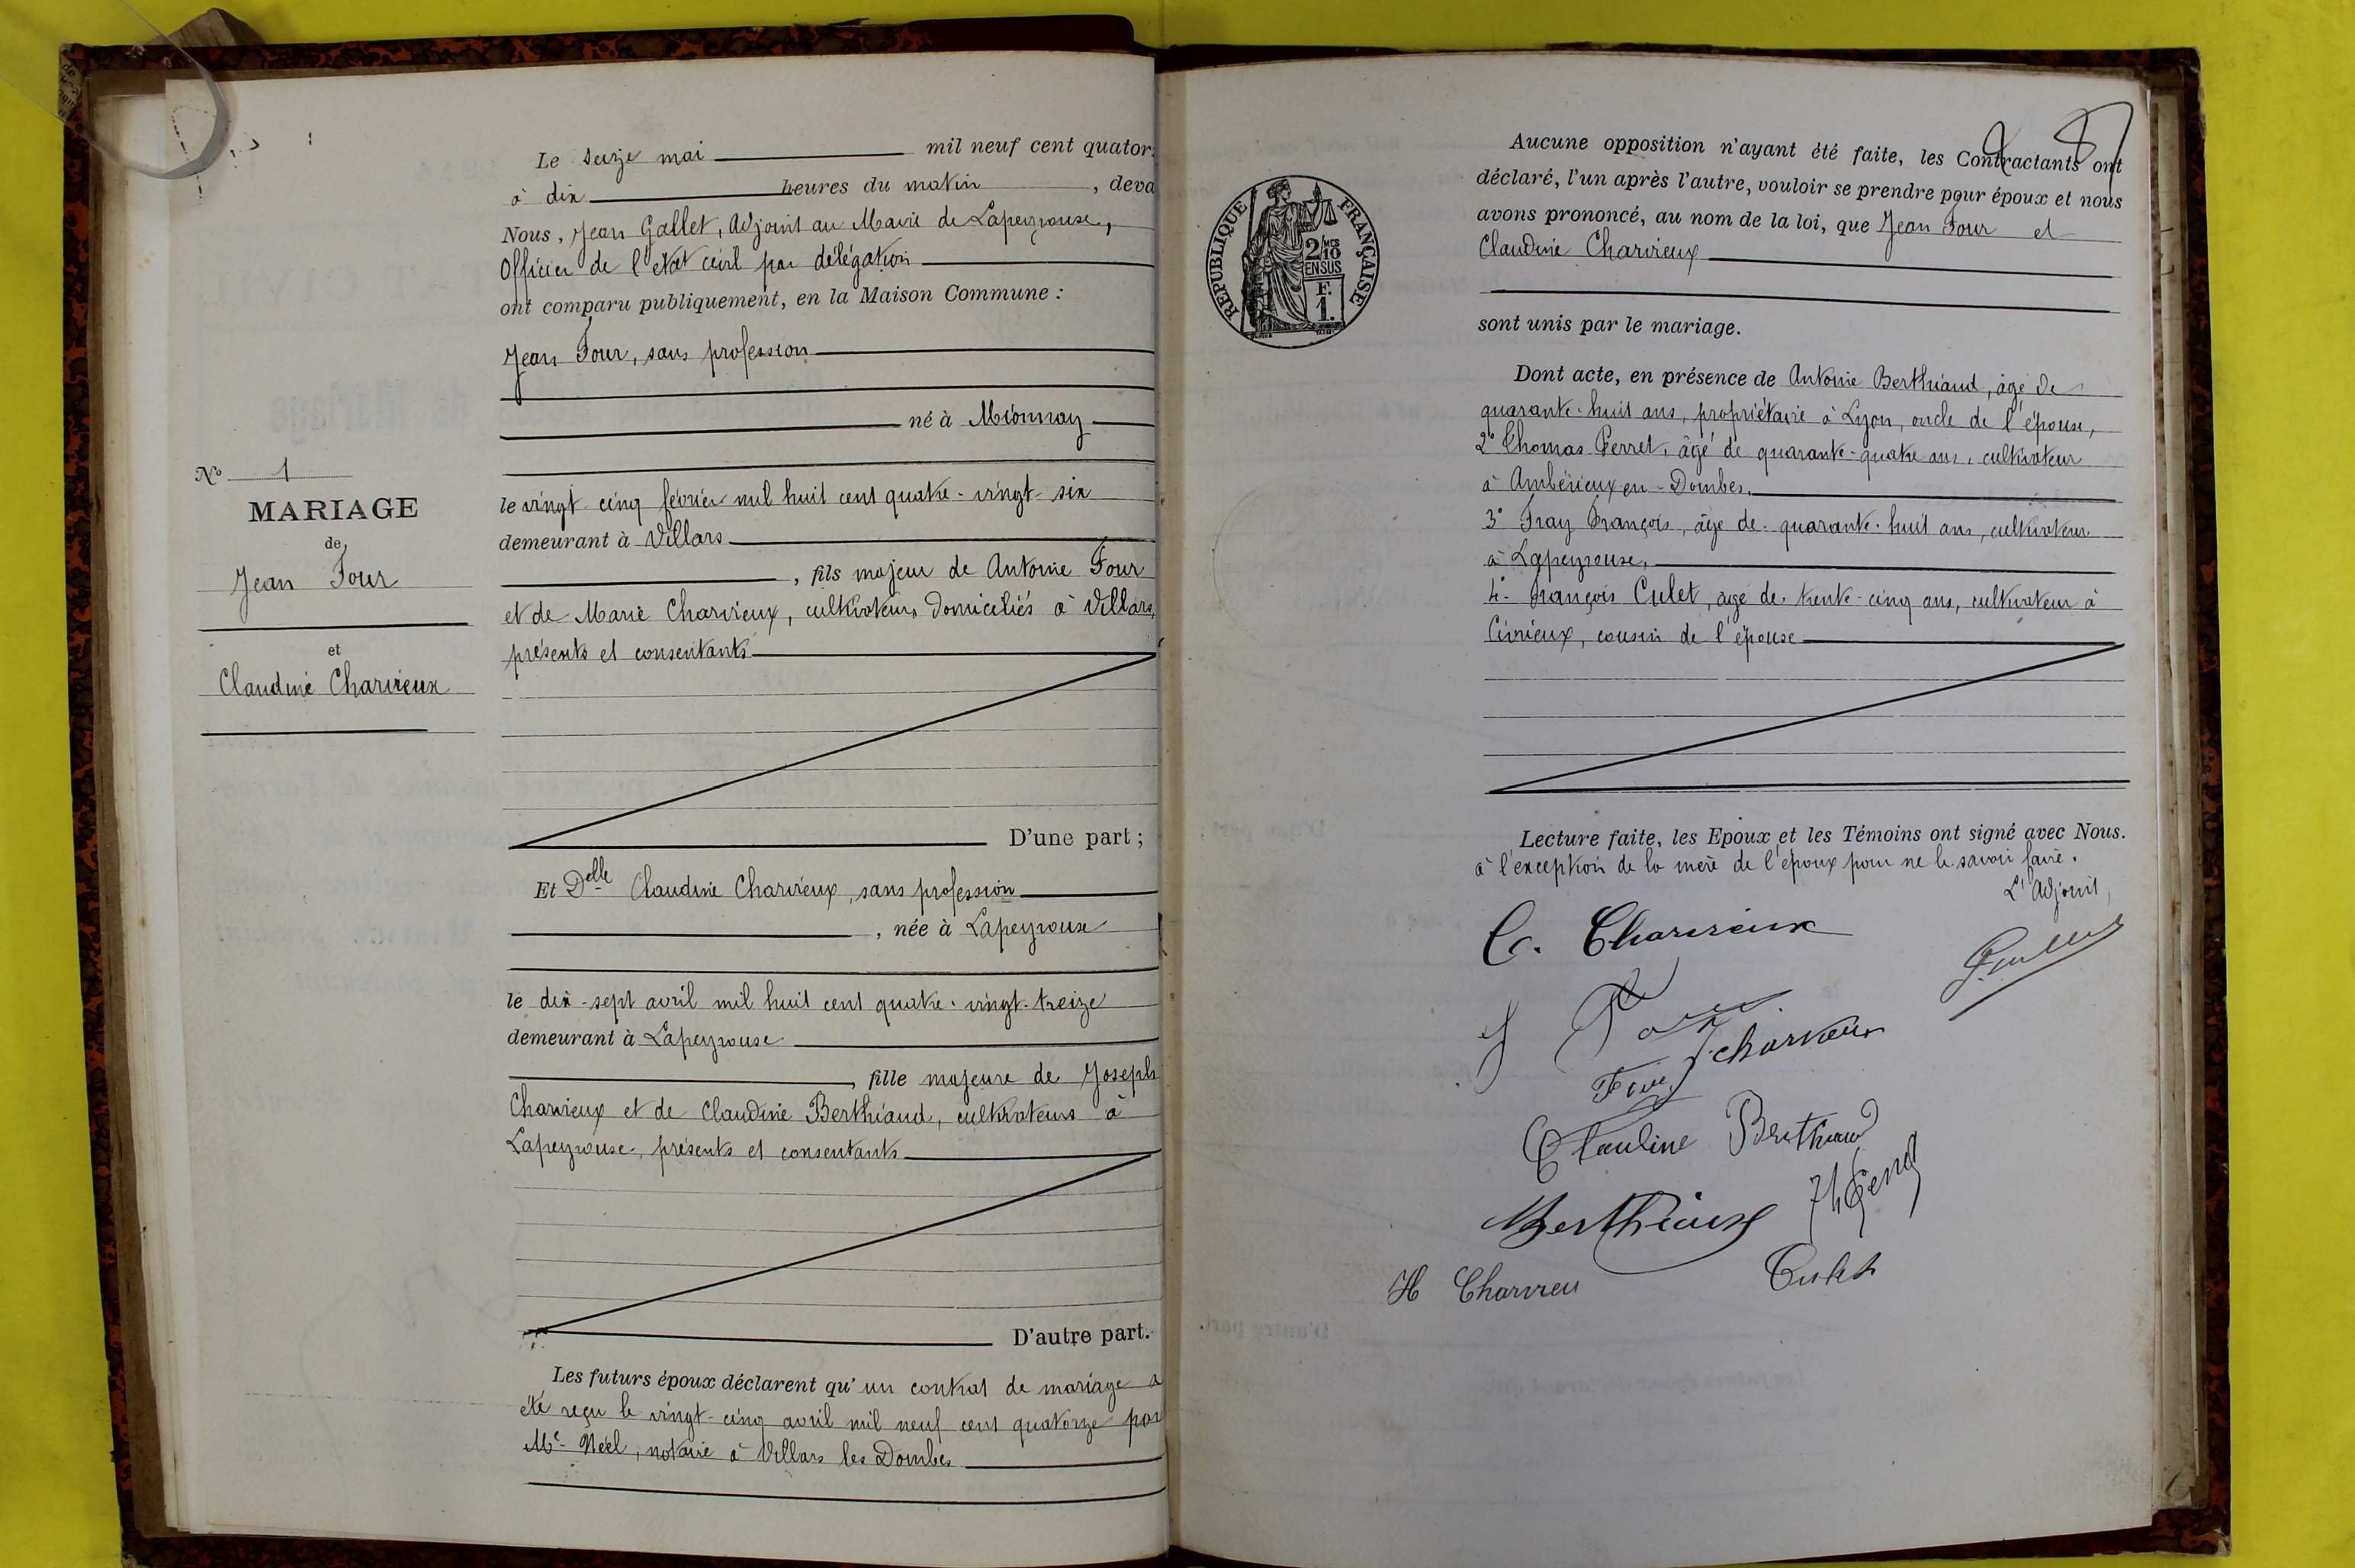 Le seize mai mil neuf cent quator
à dix heures du matin, deva
Nous, Jean Gallet, Adjoint au Maire de Lapeyrouse,
Officier de l'état civil par délégation
ont comparu publiquement, en la Maison Commune :
Jean Four, sans profession
né à Mionnay
N° 1
MARIAGE
de
Jean Four
et
Claudine Charvieux
le vingt-cinq février mil huit cent quatre-vingt-six
demeurant à Villars
, fils majeur de Antoine Four
et de Marie Charvieux, cultivateurs domiciliés à Villars,
présents et consentants
D'une part ;
Et Delle Claudine Charvieux, sans profession
, née à Lapeyrouse
le dix-sept avril mil huit cent quatre-vingt-treize
demeurant à Lapeyrouse
, fille majeure de Joseph
Charvieux et de Claudine Berthiaud, cultivateurs à
Lapeyrouse, présents et consentants
D'autre part.
Les futurs époux déclarent qu'un contrat de mariage a
été reçu le vingt-cinq avril mil neuf cent quatorze par
Me Néel, notaire à Villars les Dombes
RÉPUBLIQUE FRANÇAISE
2/10 MES
EN SUS
F.
1.
Aucune opposition n'ayant été faite, les Contractants ont
déclaré, l'un après l'autre, vouloir se prendre pour époux et nous
avons prononcé, au nom de la loi, que Jean Four et
Claudine Charvieux
sont unis par le mariage.
Dont acte, en présence de Antoine Berthiaud, âgé de
quarante-huit ans, propriétaire à Lyon, oncle de l'épouse,
2° Thomas Perret, âgé de quarante-quatre ans, cultivateur
à Ambérieux en-Dombes,
3° Fray François, âge de quarante-huit ans, cultivateur
à Lapeyrouse,
4° François Culet, âgé de trente-cinq ans, cultivateur à
Civrieux, cousin de l'épouse
Lecture faite, les Epoux et les Témoins ont signé avec Nous.
à l'exception de la mère de l'époux pour ne le savoir faire.
L'Adjoint,
C. Charvieux
J Four
Four
J. charvieux
Claudine Berthiaud
Berthiaud
H Charvieu
Culet